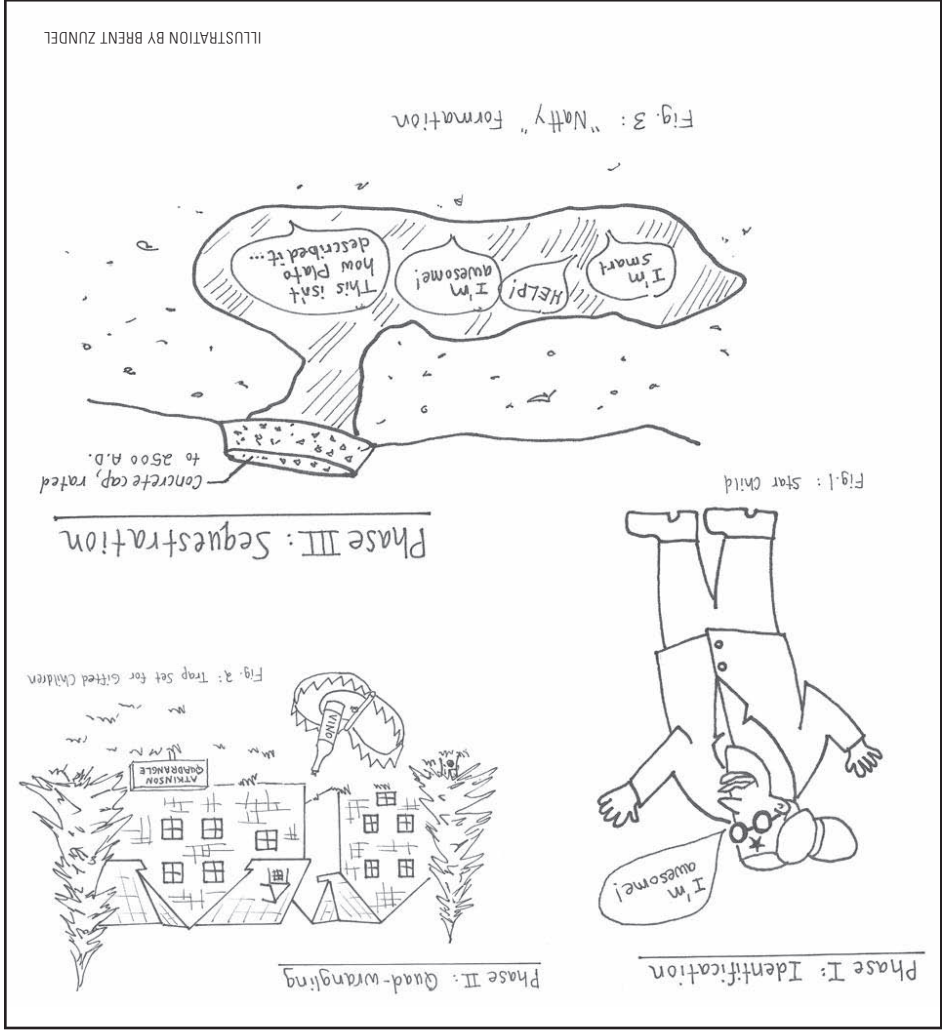 Phase I: Identification
I'm
awesome!
Fig. 1: Star Child
Phase II: Quad-wrangling
ATKINSON
QUADRANGLE
VINO
Fig. 2: Trap Set for Gifted Children
Phase III: Sequestration
Concrete cap, rated
to 2500 A.D.
I'm
smart
HELP!
I'm
awesome!
This isn't
how Plato
described it...
Fig. 3: "Natty" Formation
ILLUSTRATION BY BRENT ZUNDEL